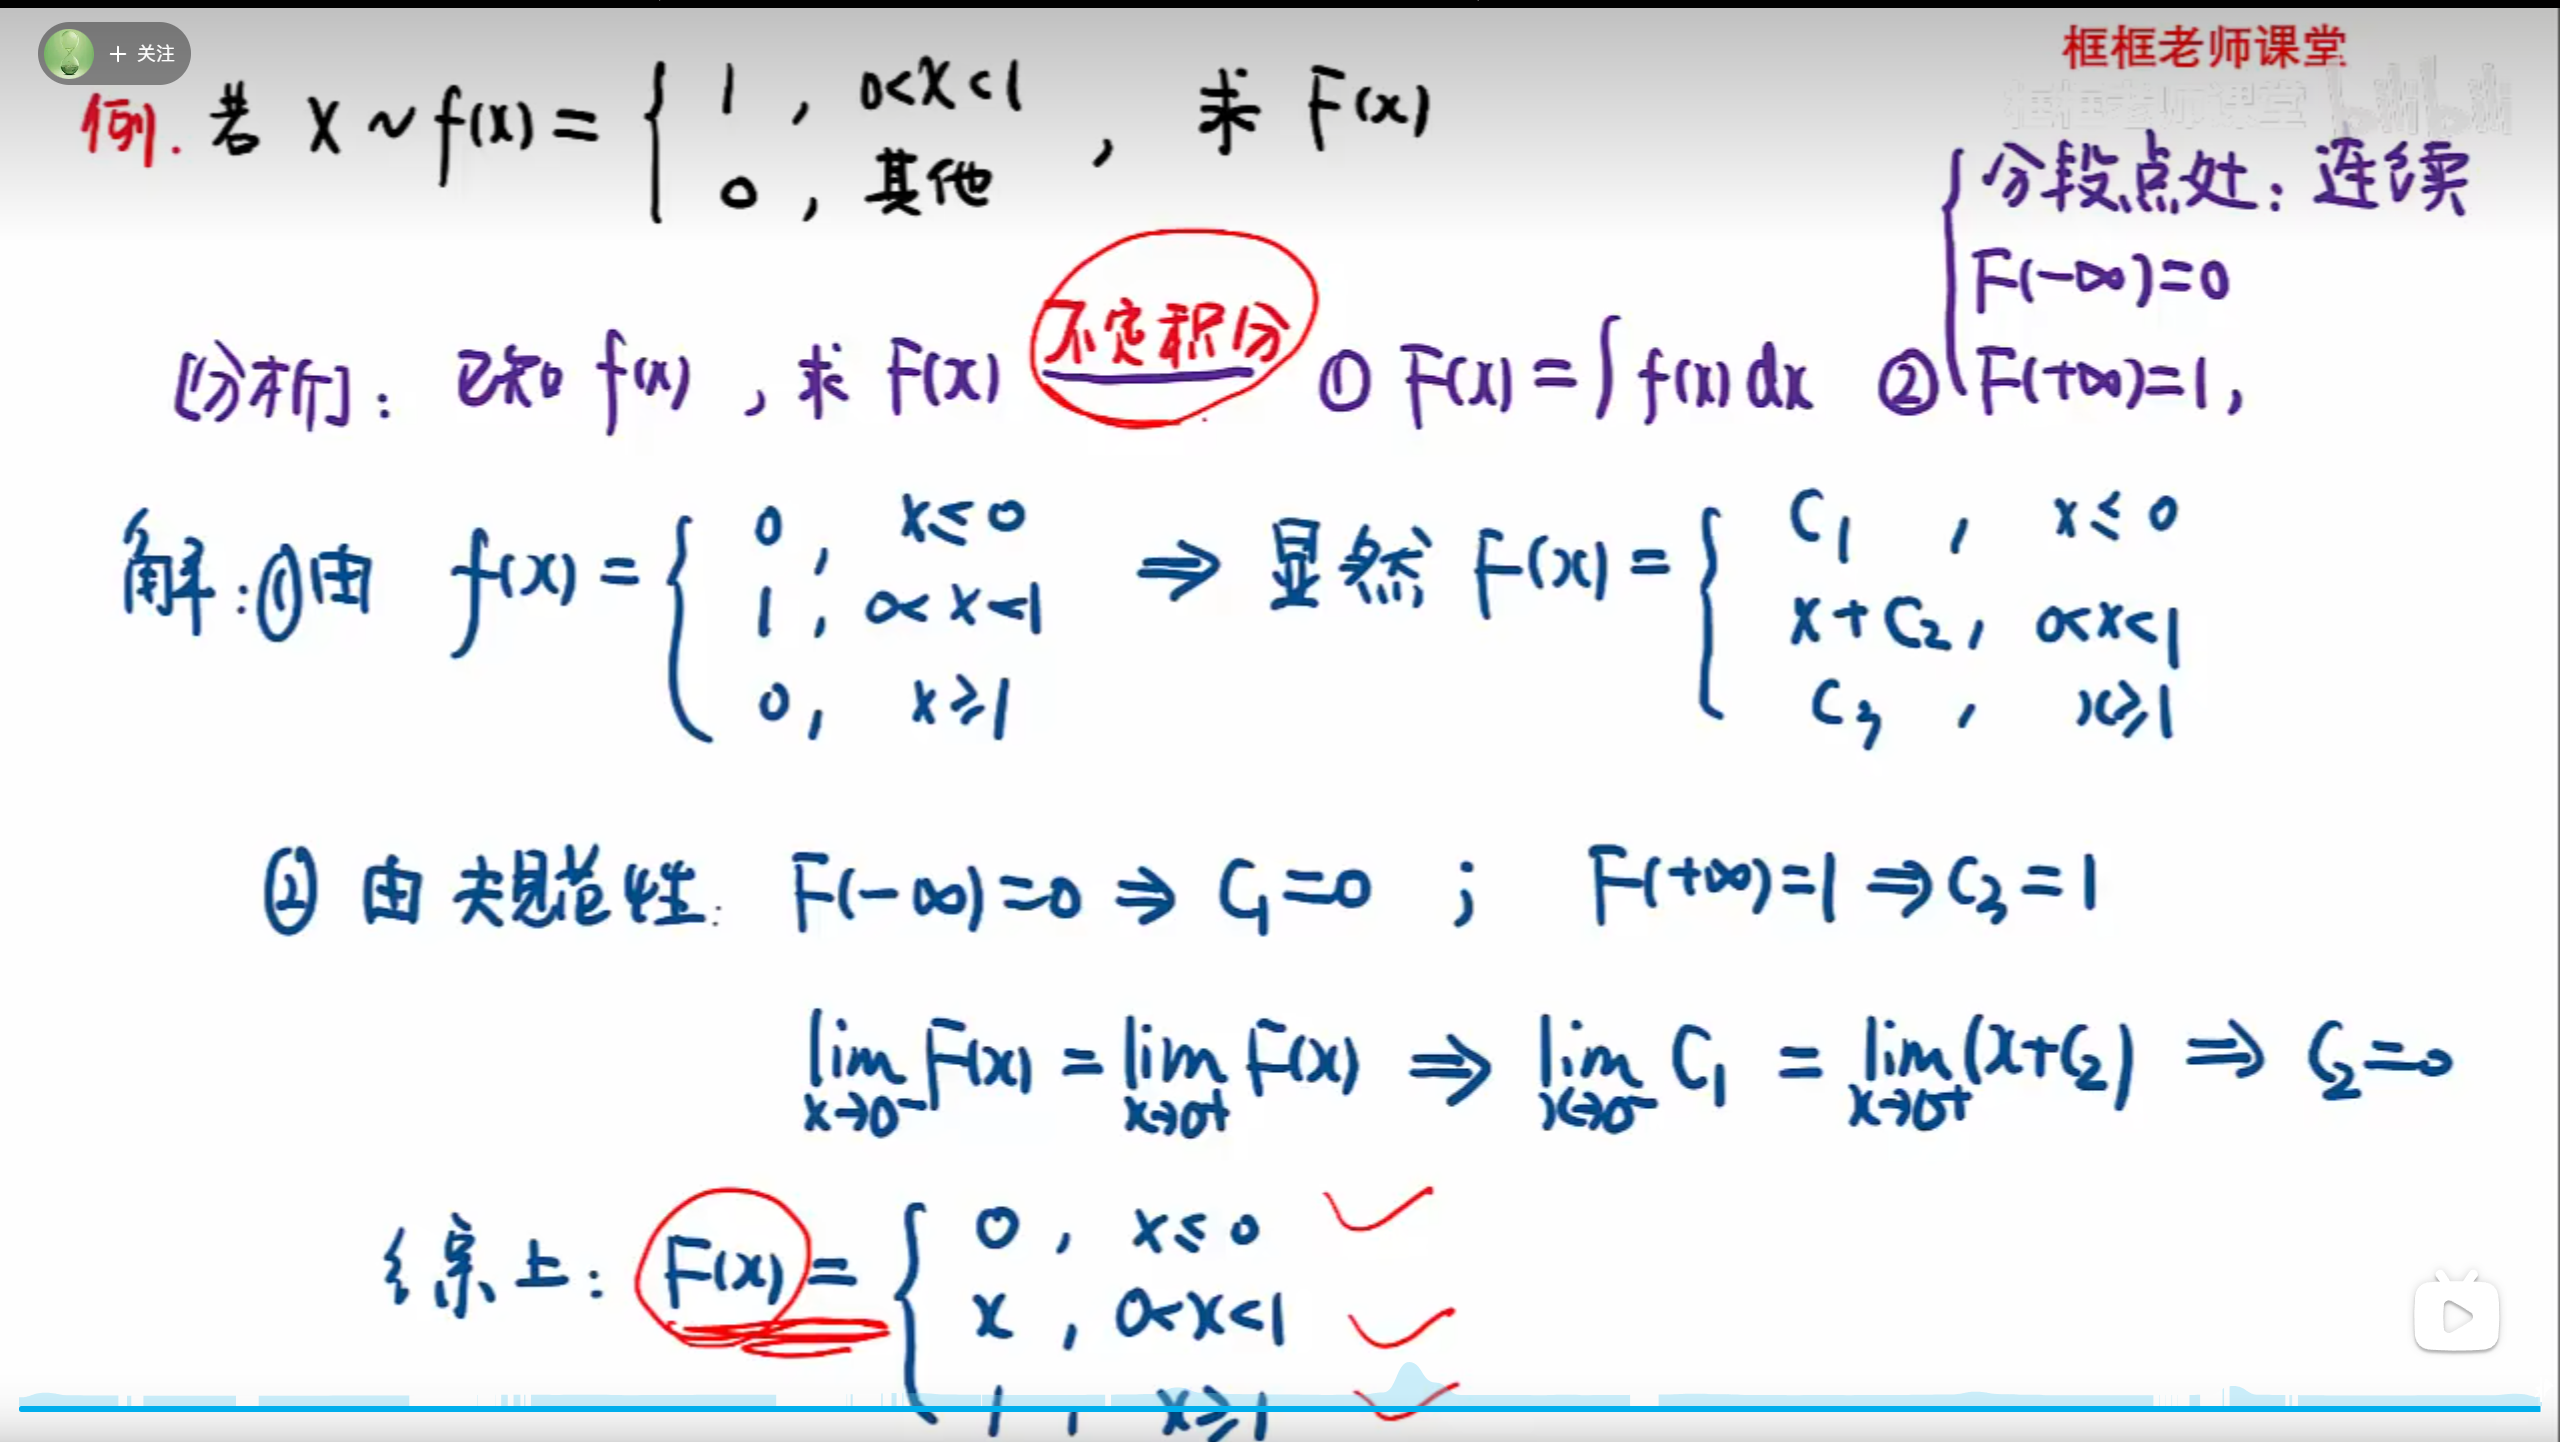 + 关注
框框老师课堂
框框老师课堂 bilibili
例. 若 X ~ f(x) = { 1 , 0<x<1
0 , 其他 , 求 F(x)
[分析]: 已知 f(x) , 求 F(x) 不定积分 ① F(x) = ∫ f(x) dx ② { 分段点处: 连续
F(-∞)=0
F(+∞)=1,
解: ①由 f(x) = { 0 , x≤0
1 , 0<x<1
0 , x≥1
⇒ 显然 F(x) = { C₁ , x≤0
x+C₂ , 0<x<1
C₃ , x≥1
② 由规范性: F(-∞)=0 ⇒ C₁=0 ; F(+∞)=1 ⇒ C₃=1
lim x→0⁻ F(x) = lim x→0⁺ F(x) ⇒ lim x→0⁻ C₁ = lim x→0⁺ (x+C₂) ⇒ C₂=0
综上: F(x) = { 0 , x≤0
x , 0<x<1
1 , x≥1